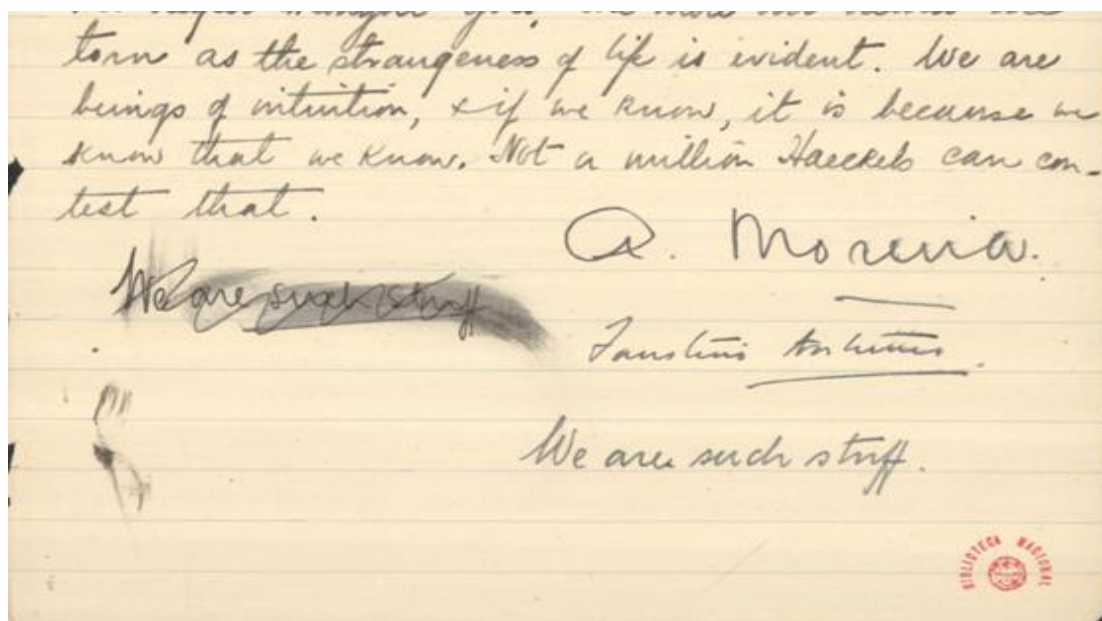 the more our
torn as the strangeness of life is evident. We are
beings of intuition, & if we know, it is because we
know that we know. Not a million Haeckels can con-
test that.
A. Moreira.
We are such stuff
Faustino Antunes.
We are such stuff.
BIBLIOTECA NACIONAL